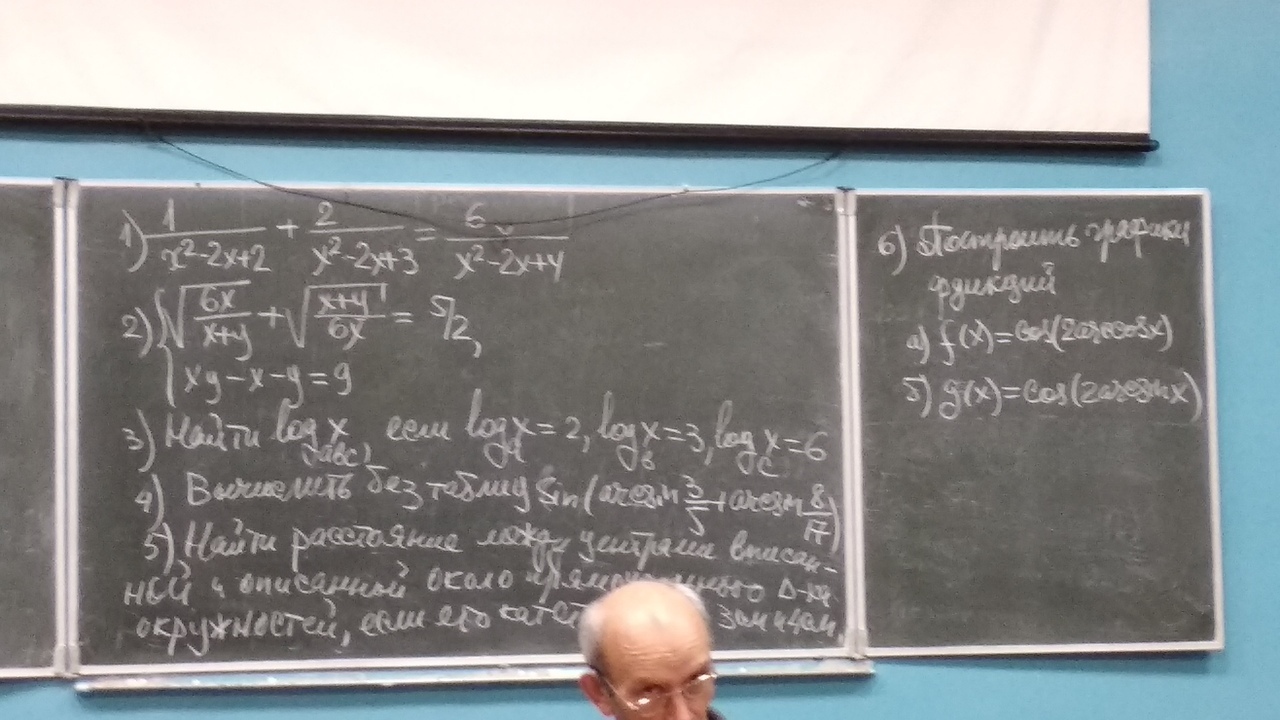 1) 1/(x²-2x+2) + 2/(x²-2x+3) = 6/(x²-2x+4)
2) { √(6x/(x+y)) + √((x+y)/6x) = 5/2,
xy-x-y=9
3) Найти log_abc x, если log_a x=2, log_b x=3, log_c x=6
4) Вычислить без таблиц sin(arcsin 3/5 + arcsin 8/17)
5) Найти расстояние между центрами вписан-
ной и описанной около Δ-ка
окружностей, если его
6) Построить графики
функций
а) f(x)=cos(2arccosx)
б) g(x)=cos(2arcsinx)